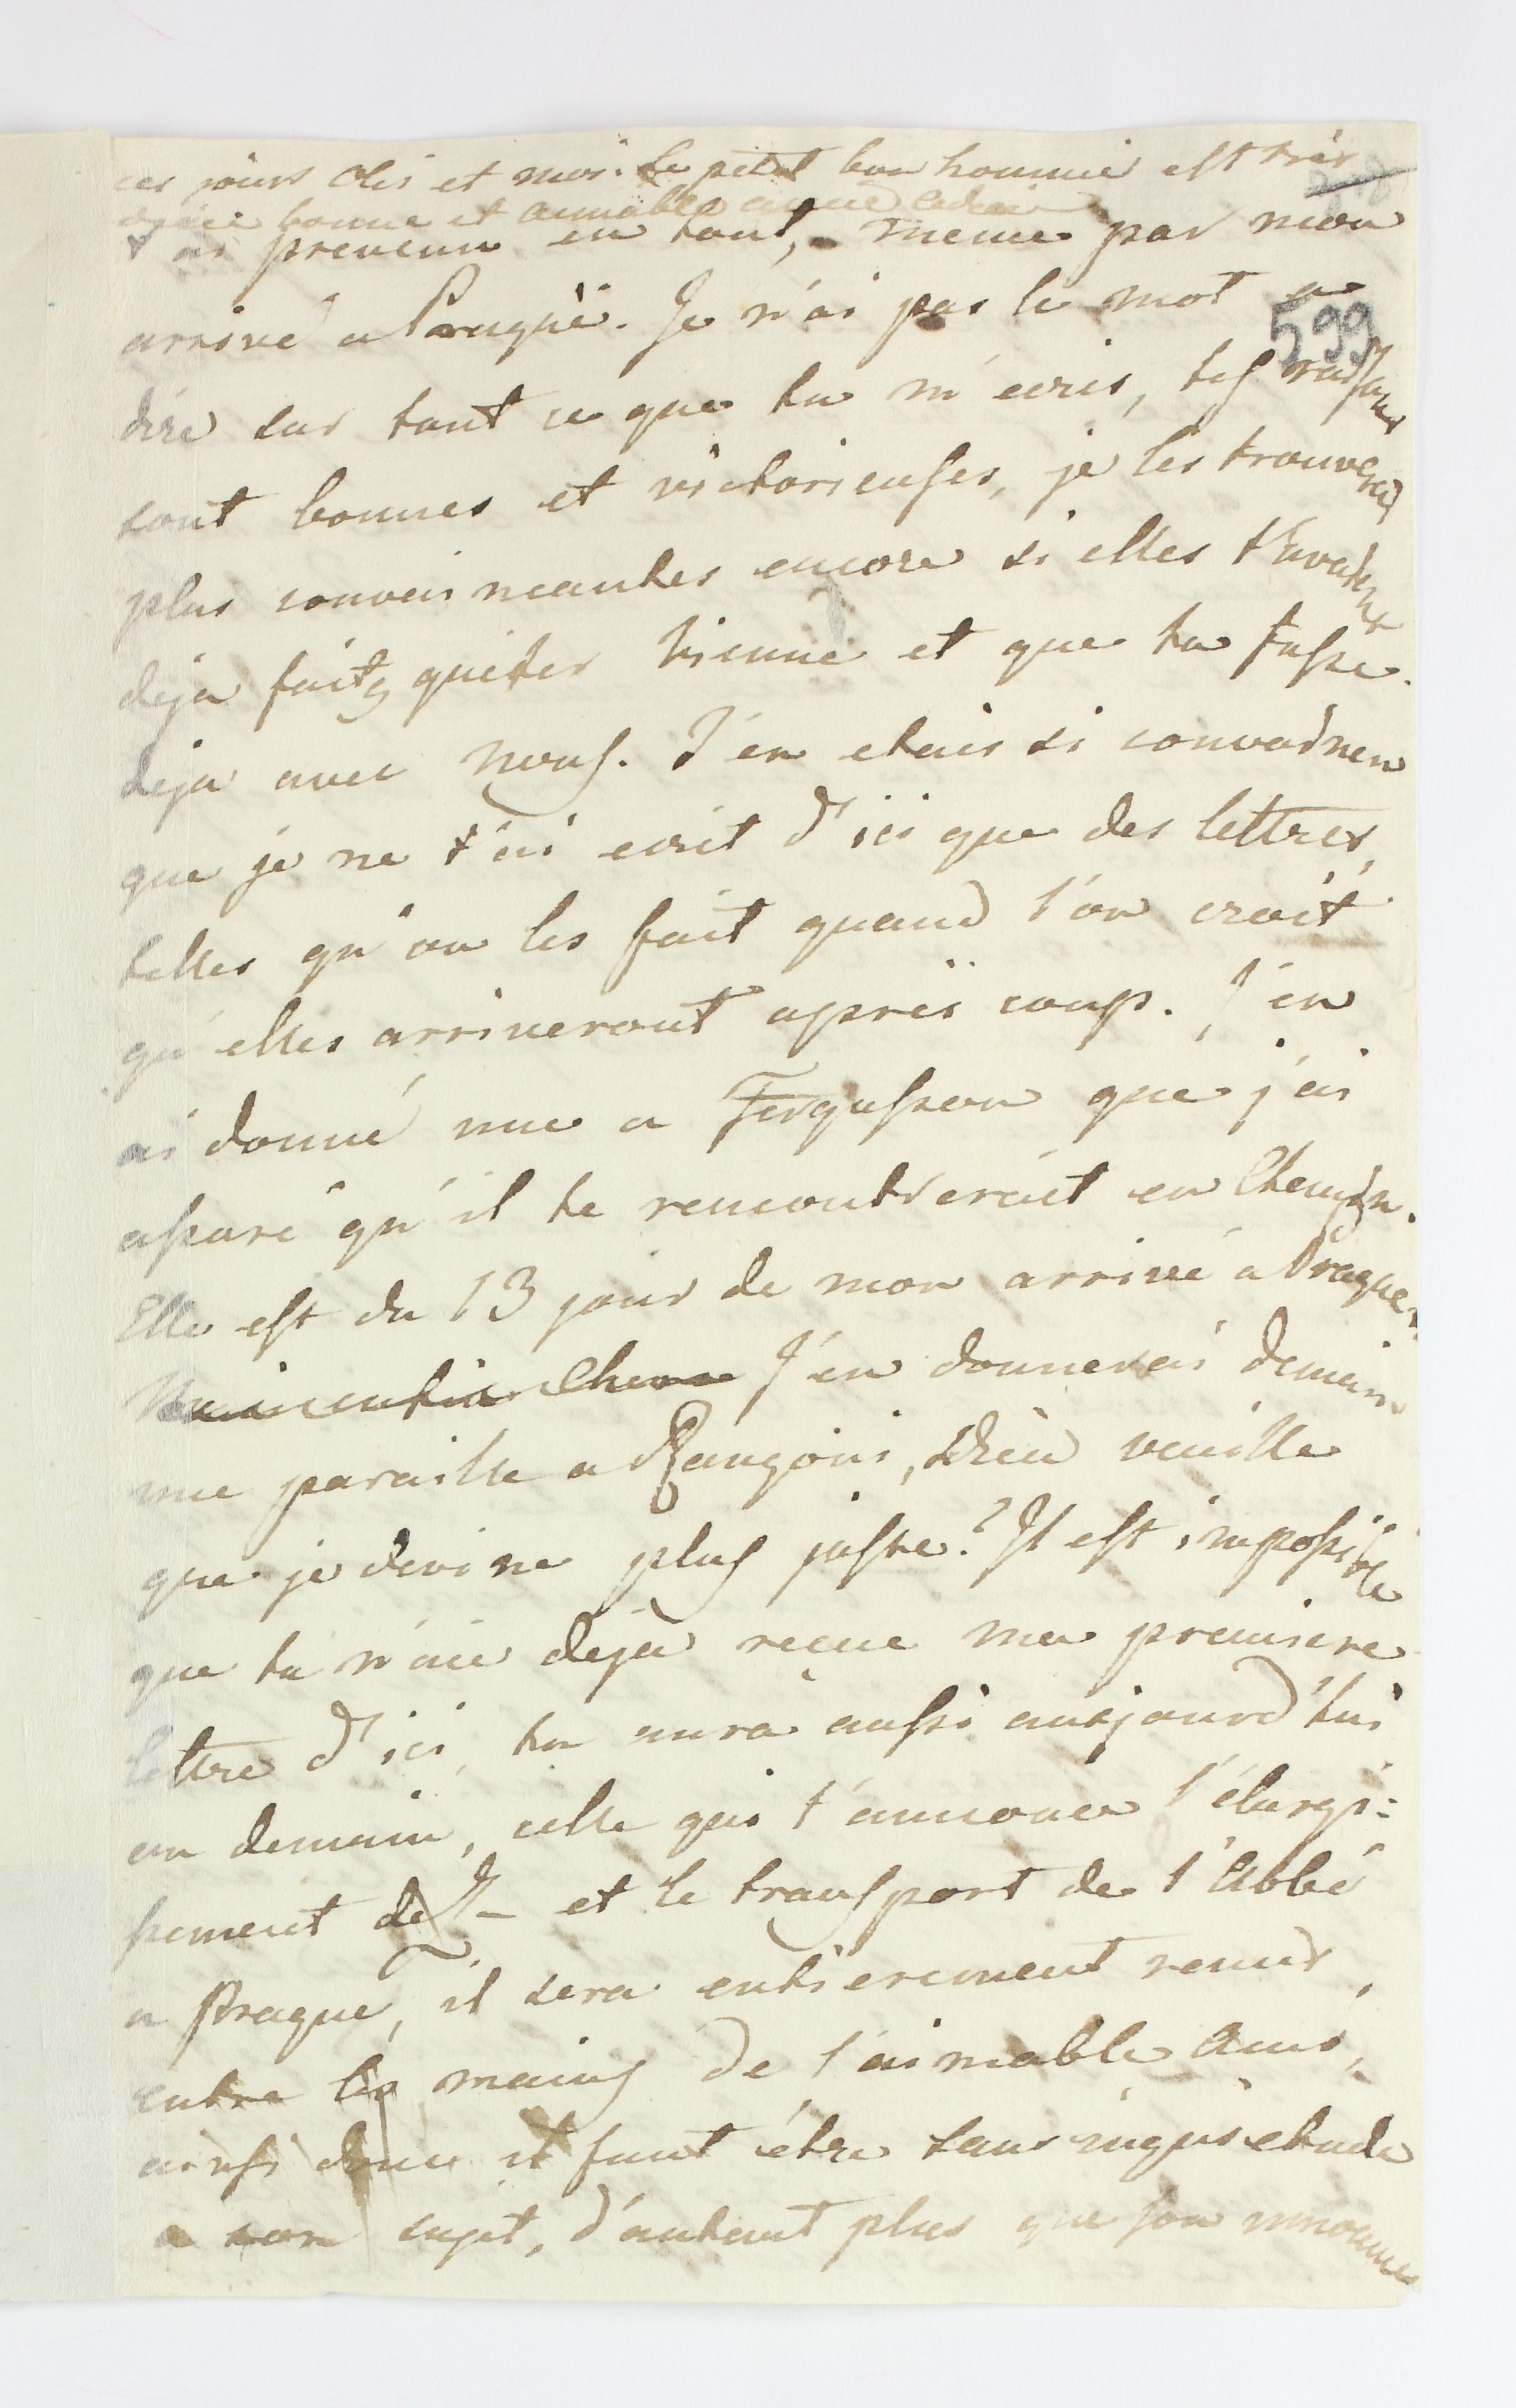 ces jours Olis et moi. Le petit bon homme est très
bonne et aimable
t'ai prevenu en tout, meme par mon
599
arrivé a Prague. Je n'ai pas le mot a
dire sur tout ce que tu m'ecris, tes raisons
sont bonnes et victorieuses, je les trouverai
plus convaincantes encore si elles t'avoient
deja faits quiter Vienne et que tu fusse
deja avec nous. J'en etais si convaincu
que je ne t'ai ecrit d'ici que des lettres,
telles qu'on les fait quand l'on croit
qu'elles arriveront après coup. J'en
ai donné une a Fergusson que j'ai
assuré qu'il te rencontrerait en Chemin.
Elle est du 13 jour de mon arrivé a Prague.
J'en donnerai demain
une paraille a Rangoni, Dieu veuille
que je devine plus juste? Il est impossible
que tu n'aie déja reçue ma premiere
lettre d'ici, tu aura aussi aujourd'hui
ou demain, celle qui t'annonce l'élargi:
ssement de et le transport de l'Abbé
a Prague, il sera entierement remis,
entre les mains de l'aimable Ami,
ainsi donc il faut être sans inquietude
a son sujet, d'autant plus que son innocence